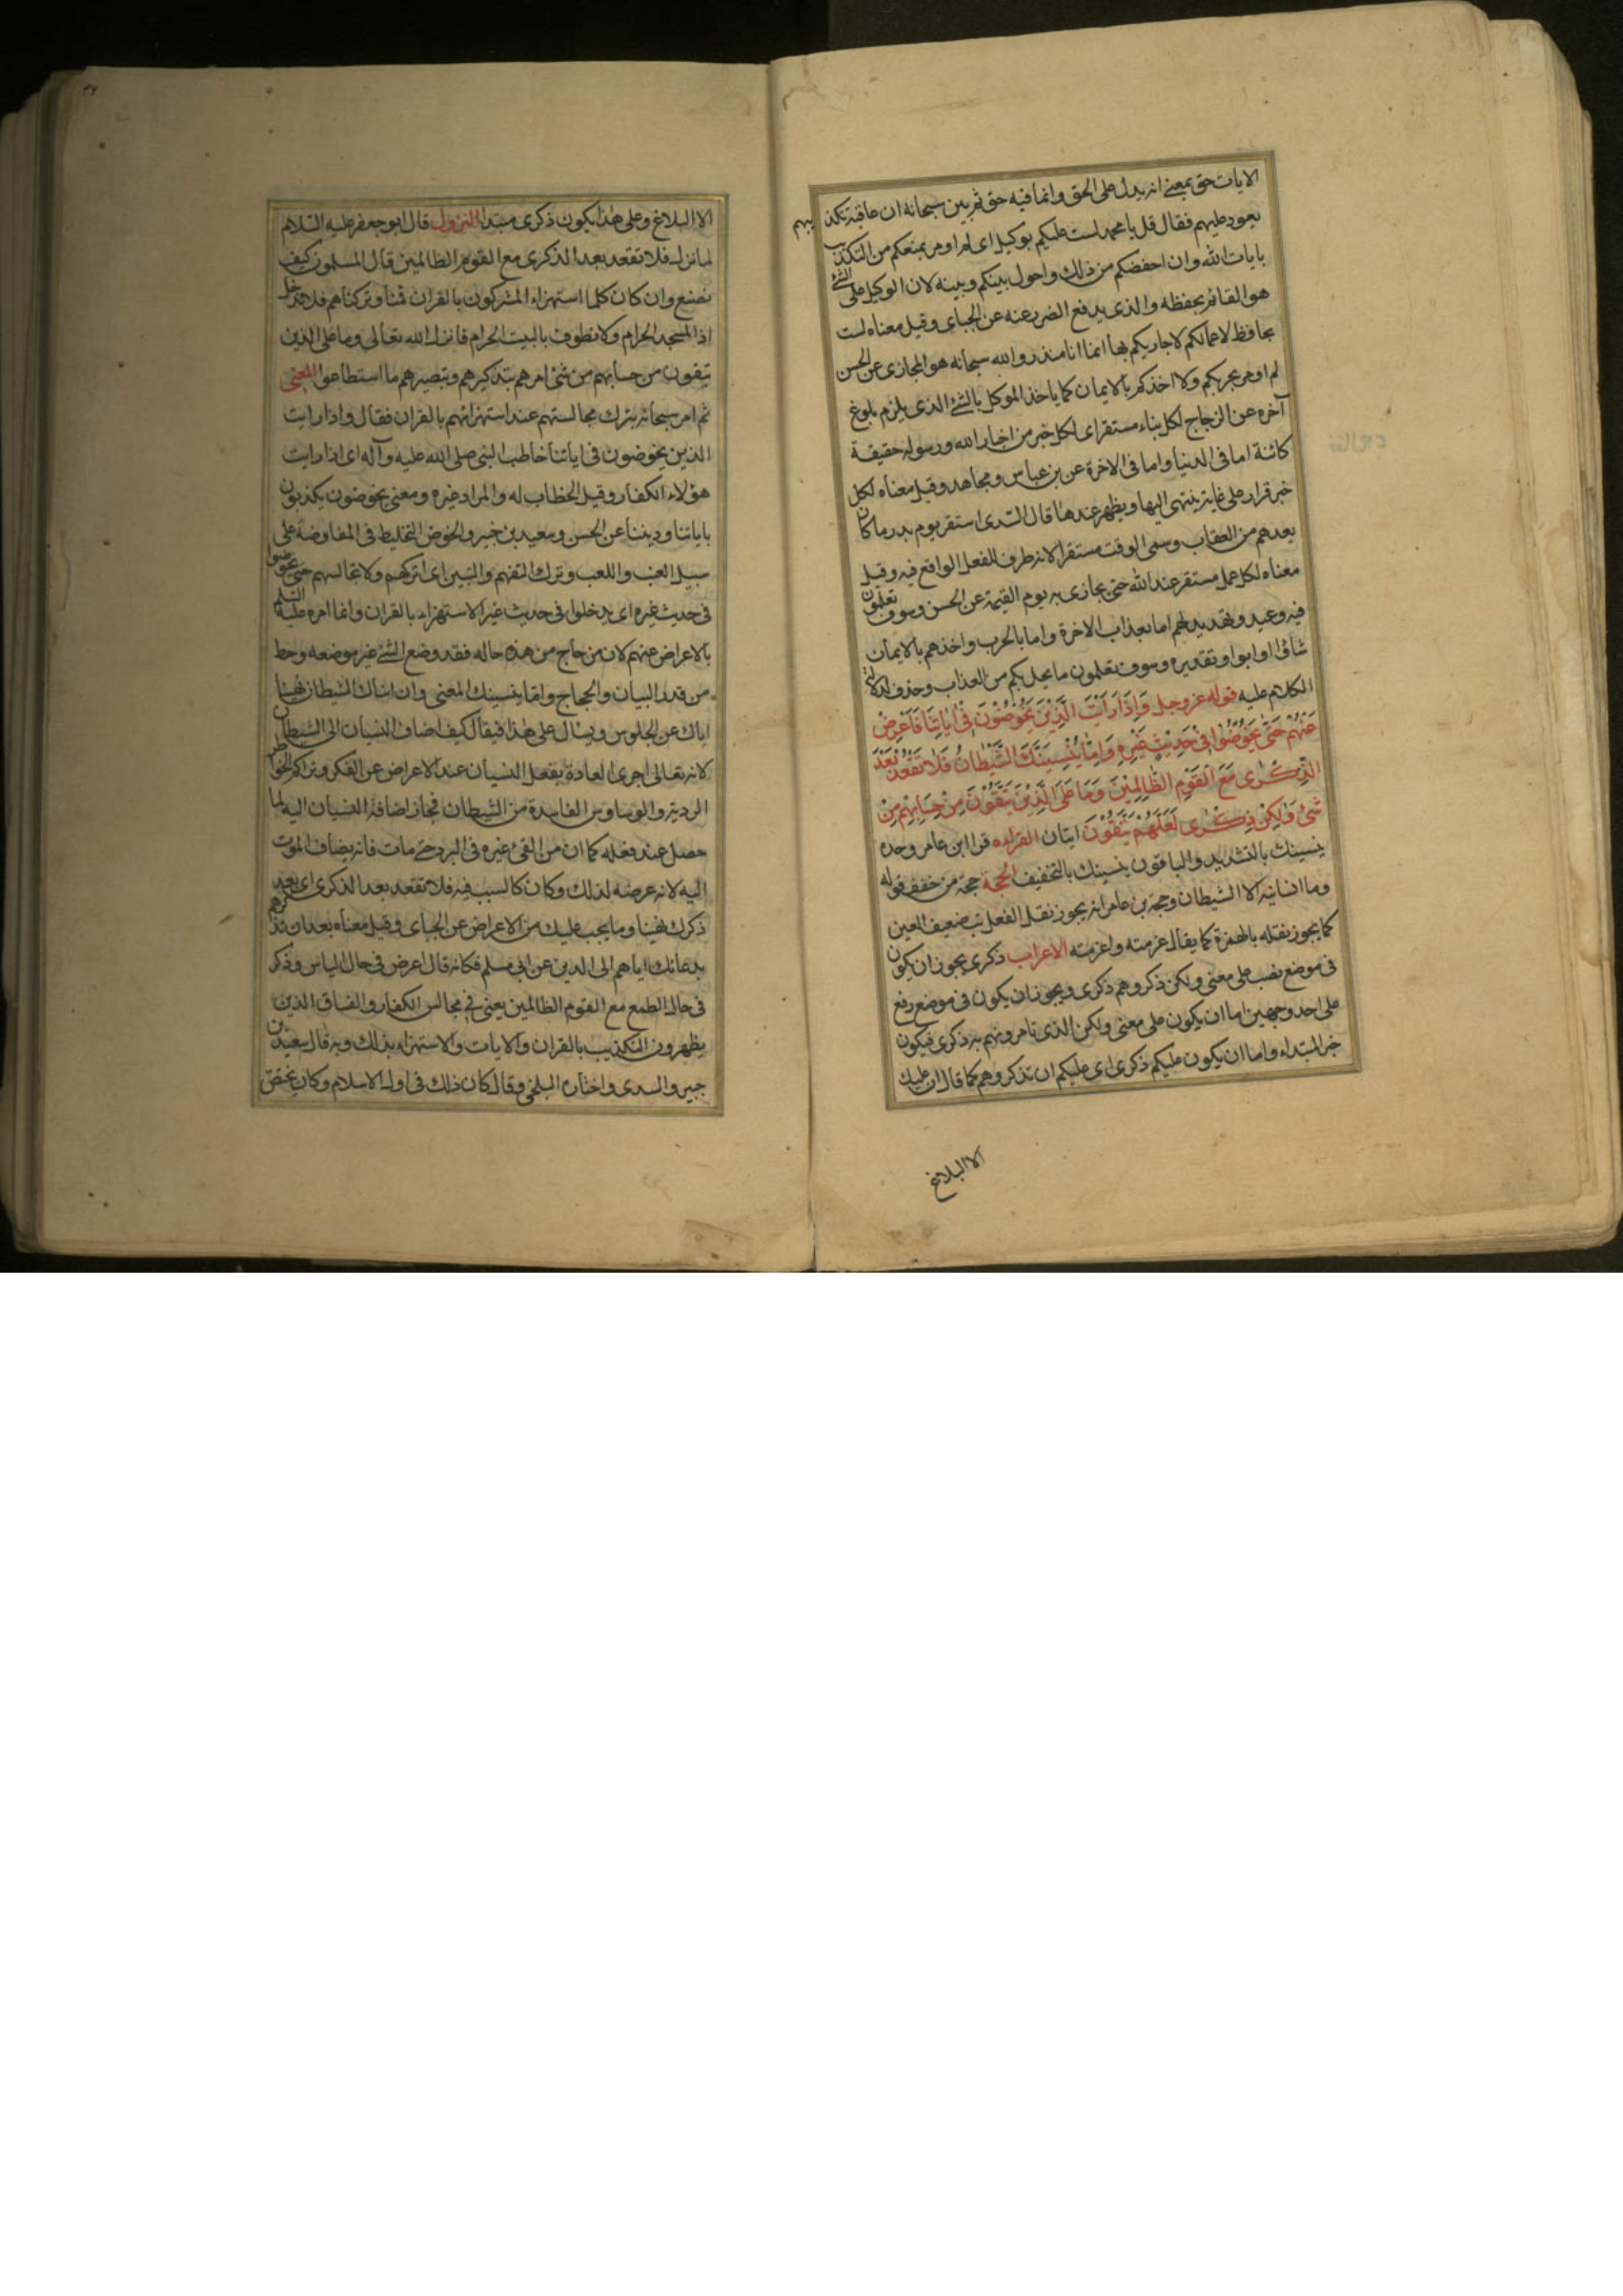 الايات حق بمعنى انه يدل على الحق وانما فيه حق ثم بين سبحانه ان عاقبة تكذيبهم
يعود عليهم فقال قل يا محمد لست عليكم بوكيل اى لم اومر بمنعكم من التكذيب
بايات الله وان احفضكم من ذلك واحول بينكم وبينه لان الوكيل على الشئ
هو القائم بحفظه والذى يدفع الضرر عنه عن الجباى وقيل معناه لست
بحافظ لاعمالكم لاجازيكم بها انما انا منذر والله سبحانه هو المجازى عن الحسن
لم اومر بحربكم ولا اخذكم بالايمان كما ياخذ الموكل بالشئ الذى يلزم بلوغ
آخره عن الزجاج لكل بناء مستقر اى لكل خبر من اخبار الله ورسوله حقيقة
كائنة اما فى الدنيا واما فى الاخرة عن بن عباس ومجاهد وقيل معناه لكل
خبر قرار على غاية ينتهى اليها ويظهر عندها قال السدى استقر يوم بدر ما كان
يعدهم من العقاب وسمى الوقت مستقرا لانه ظرف للفعل الواقع فيه وقيل
معناه لكل عمل مستقر عند الله حتى يجازى به يوم القيمة عن الحسن وسوف تعلمون
فيه وعيد وتهديد لهم اما بعذاب الاخرة واما بالحرب واخذهم بالايمان
شاؤا او ابوا وتقديره وسوف تعلمون ما يحل بكم من العذاب وحذف لدلالة
الكلام عليه قوله عز وجل وَاِذَا رَاَيْتَ الَّذِيْنَ يَخُوْضُوْنَ فِىْ اٰيَاتِنَا فَاَعْرِضْ
عَنْهُمْ حَتّٰى يَخُوْضُوْا فِىْ حَدِيْثٍ غَيْرِهٖ وَاِمَّا يُنْسِيَنَّكَ الشَّيْطَانُ فَلَا تَقْعُدْ بَعْدَ
الذِّكْرٰى مَعَ الْقَوْمِ الظَّالِمِيْنَ وَمَا عَلَى الَّذِيْنَ يَتَّقُوْنَ مِنْ حِسَابِهِمْ مِنْ
شَىْءٍ وَلٰكِنْ ذِكْرٰى لَعَلَّهُمْ يَتَّقُوْنَ ايتان القراءه قرا ابن عامر وحده
ينسينك بالتشديد والباقون ينسينك بالتخفيف الحجة حجة من خفف قوله
وما انسانيه الا الشيطان وحجة بن عامر انه يجوز نقل الفعل بتضعيف العين
كما يجوز نقله بالهمزة كما يقال غرمته واغرمته الاعراب ذكرى يجوز ان يكون
فى موضع نصب على معنى ولكن ذكروهم ذكرى ويجوز ان يكون فى موضع رفع
على احد وجهين اما ان يكون على معنى ولكن الذى تامرونهم به ذكرى فيكون
خبر المبتداء واما ان يكون عليكم ذكرى اى عليكم ان تذكروهم كما قال ان عليك
الا البلاغ
الا البلاغ وعلى هذا يكون ذكرى مبتدا النزول قال ابو جعفر عليه السلام
لما نزل فلا تقعد بعد الذكرى مع القوم الظالمين قال المسلمون كيف
نصنع وان كان كلما استهزاء المشركون بالقران قمنا وتركناهم فلا ندخل
اذا المسجد الحرام ولا نطوف بالبيت الحرام فانزل الله تعالى وما على الذين
يتقون من حسابهم من شئ امرهم بتذكيرهم وتبصيرهم ما استطاعوا المعنى
ثم امر سبحانه بترك مجالستهم عند استهزائهم بالقران فقال واذا رايت
الذين يخوضون فى اياتنا خاطب النبى صلى الله عليه وآله اى اذا رايت
هؤلاء الكفار وقيل الخطاب له والمراد غيره ومعنى يخوضون يكذبون
باياتنا وديننا عن الحسن وسعيد بن خبير والخوض التخليط فى المفاوضة على
سبيل العبث واللعب وترك التفهم والتبين اى اتركهم ولا تجالسهم حتى يخوضوا
فى حديث غيره اى يدخلوا فى حديث غير الاستهزاء بالقران وانما امره عليه السلم
بالاعراض عنهم لان من حاج من هذه حاله فقد وضع الشئ غير موضعه وحط
من قدر البيان والحجاج واما ينسينك المعنى وان انساك الشيطان نهينا
اياك عن الجلوس ويسال على هذا فيقال كيف اضاف النسيان الى الشيطان
لانه تعالى اجرى العادة بفعل النسيان عند الاعراض عن الفكر وتراكم الخواطر
الردية والوساوس الفاسدة من الشيطان فجاز اضافة النسيان اليه لما
حصل عند فعله كما ان من القى غيره فى البرد حتى مات فانه يضاف الموت
اليه لانه عرضه لذلك وكان كالسبب فيه فلا تقعد بعد الذكرى اى بعد
ذكرك نهينا وما يجب عليك من الاعراض عن الجباى وقيل معناه بعد ان تذكرهم
بدعائك اياهم الى الدين عن ابى مسلم فكانه قال اعرض فى حال الياس وذكر
فى حال الطمع مع القوم الظالمين يعنى فى مجالس الكفار والفساق الذين
يظهرون التكذيب بالقران والايات والاستهزاء بذلك وبه قال سعيد بن
جبير والسدى واختاره البلخى وقال كان ذلك فى اول الاسلام وكان يختص